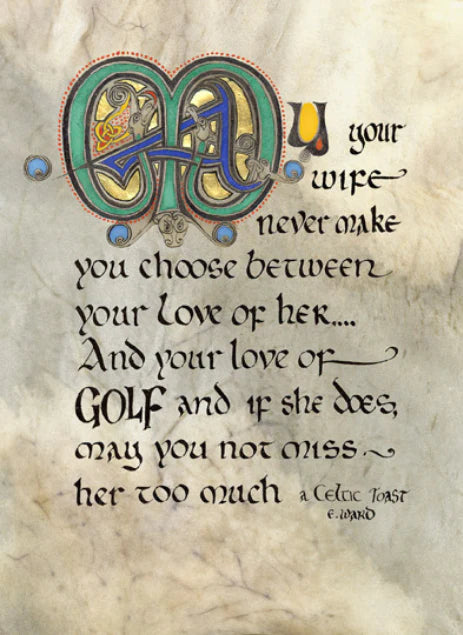 MAY your
wife
never make
you choose between
your love of her....
And your love of
GOLF and if she does,
may you not miss ~
her too much a Celtic Toast
E. WARD